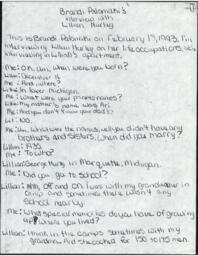 Brandi Polomathi's
interview with
Lillian Hurley
This is Brandi Polomathi on February 17, 1993. I'm
interviewing Lillian Hurley on her life occupations. We're
interviewing in Lillian's apartment.
Me: Oh, Lillian, when were you born?
Lillian: December 16
Me: And where?
Lillian: In lower Michigan.
Me: What were your parents names?
Lillian: My mother's name was Ari.
Me: And you don't know your dad's?
Lil: No.
Me: you didn't have any
brothers and sisters. When did you marry?
Lillian: 1935
Me: To who?
Lillian: George Hurley in Marquette, Michigan.
Me: Did you go to school?
Lillian: off and on. I was with my grandmother in
camp and sometimes there wasn't any
school nearby.
Me: What special memories do you have of growing
up where you lived?
Lillian: I think in the camps sometimes with my
grandma. And she cooked for 150 to 175 men.